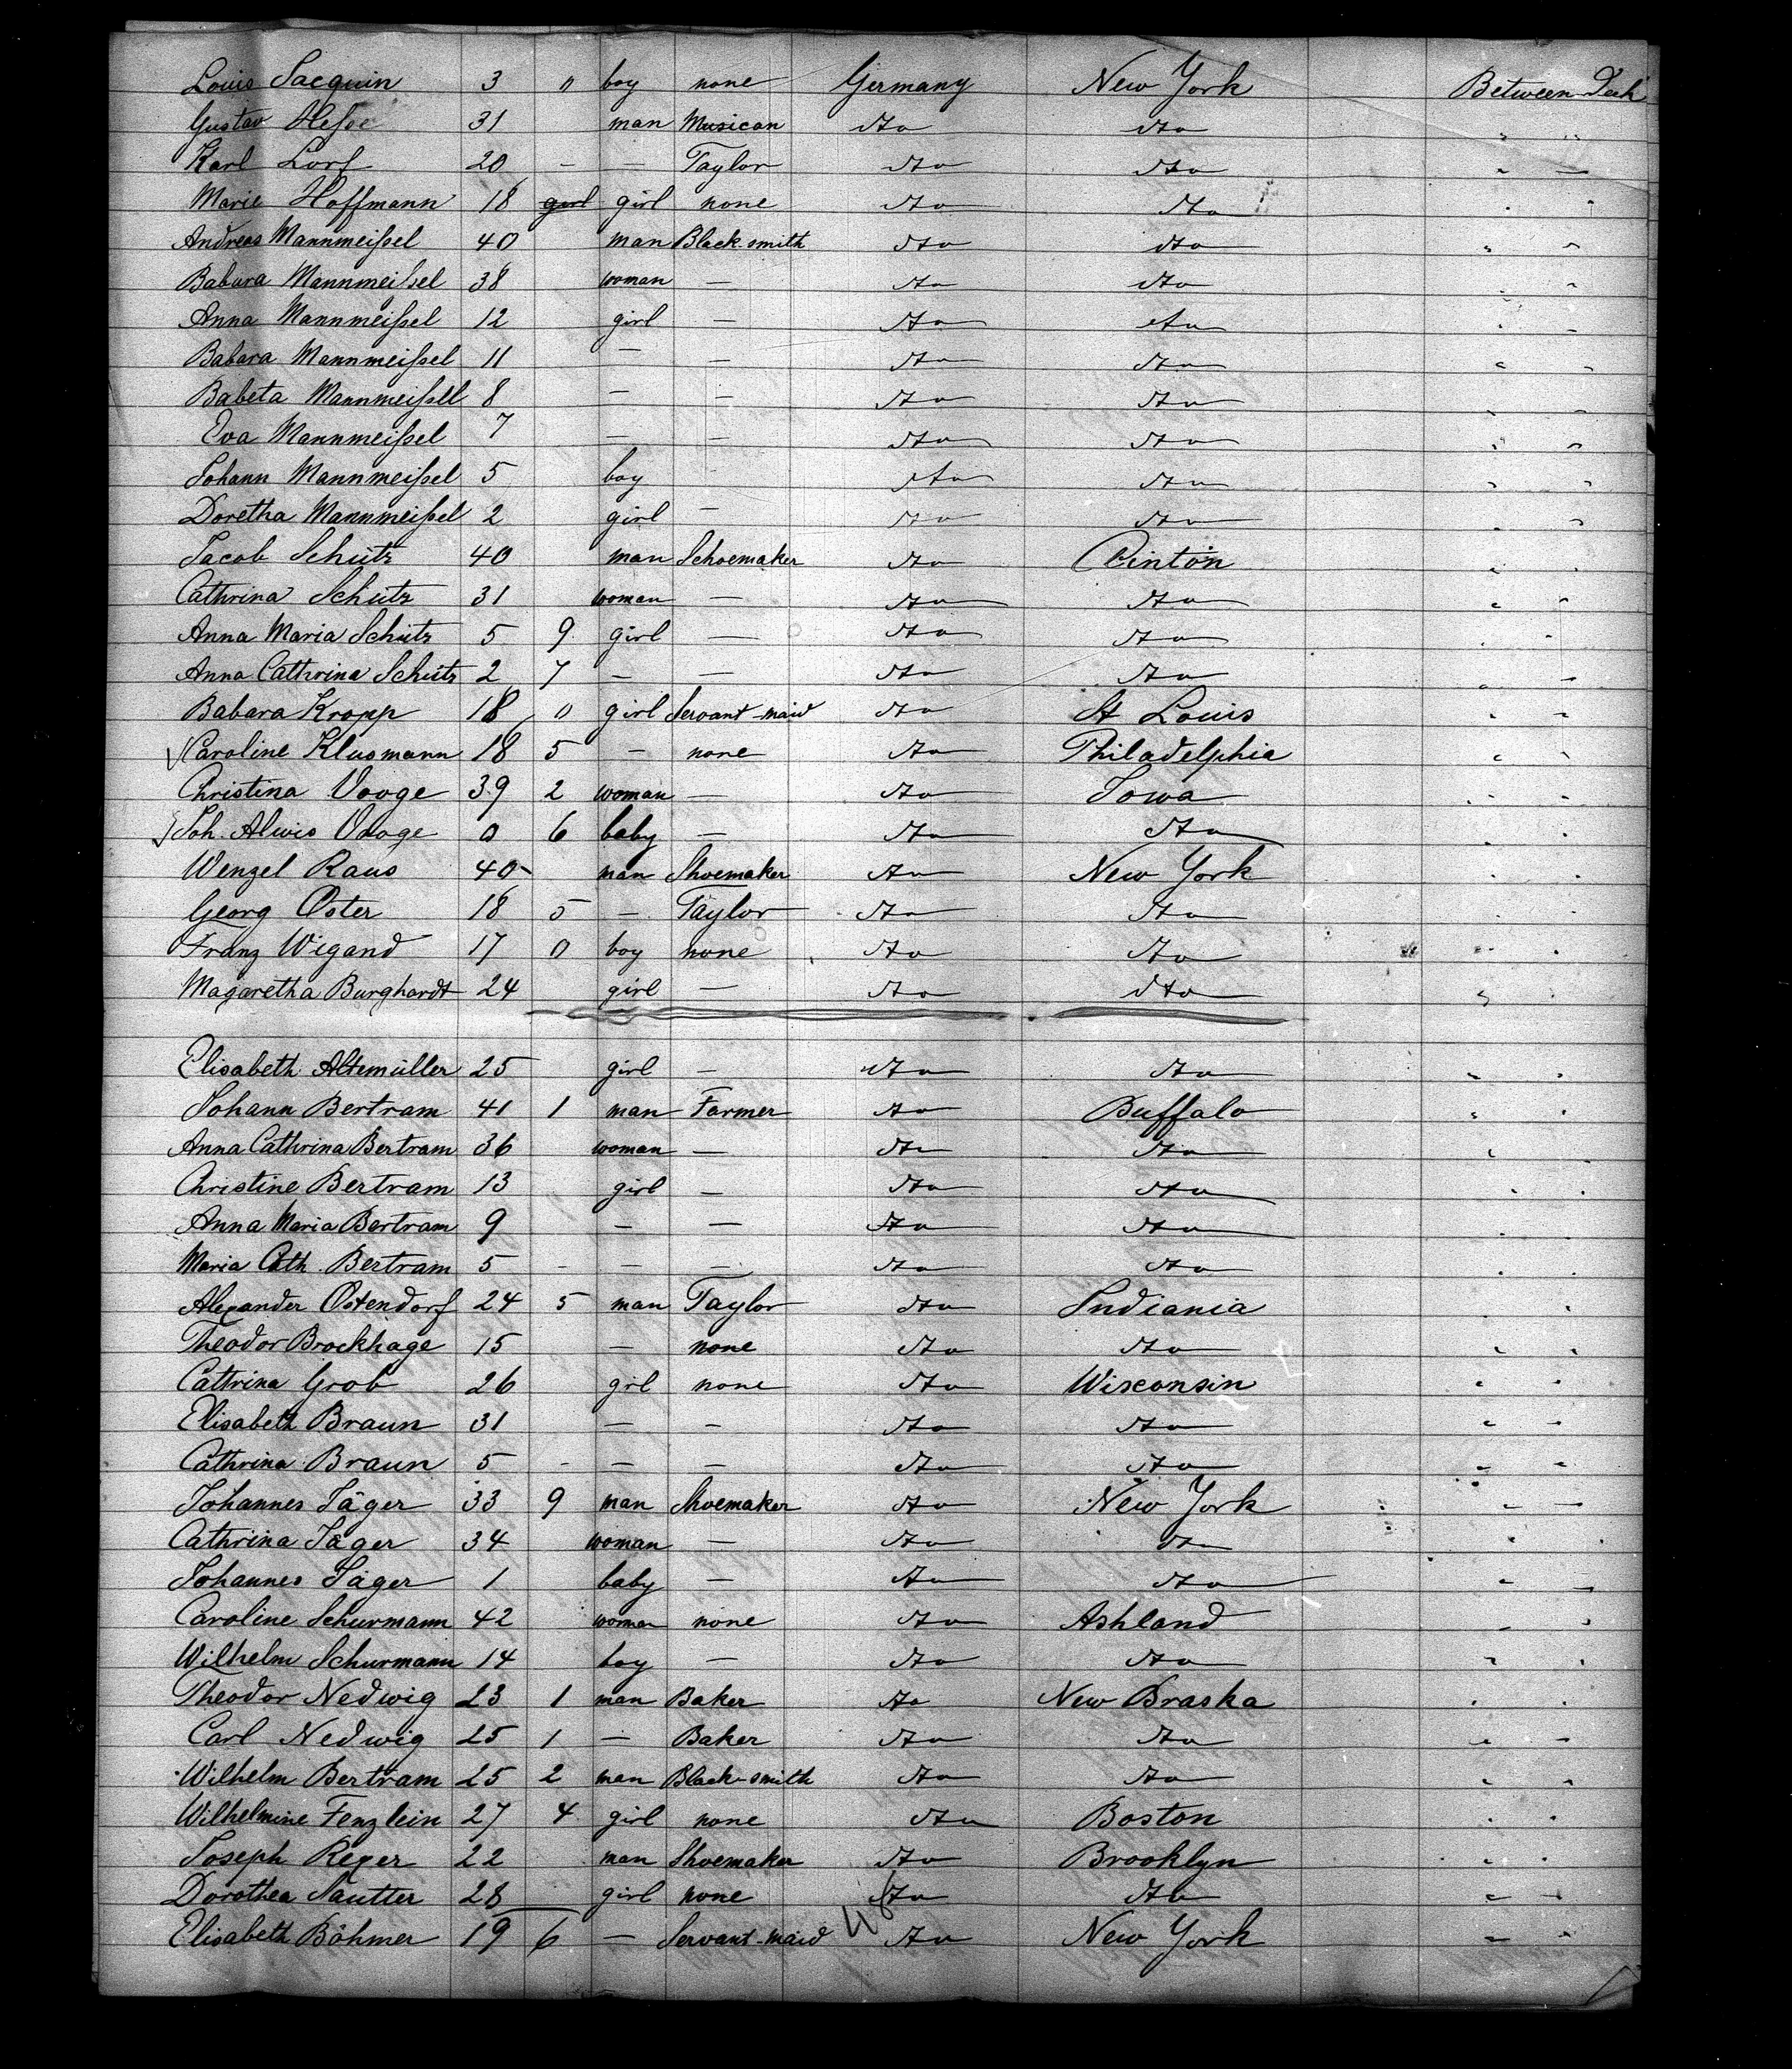 Louis Jacquin 3 0 boy none Germany New York Between Deck
Gustav Heße 31 man Musican dto dto " "
Karl Lorf 20 - - Taylor dto dto " "
Marie Hoffmann 18 girl girl none dto dto " "
Andreas Mannmeißel 40 man Black smith dto dto " "
Babara Mannmeißel 38 woman - dto dto " "
Anna Mannmeißel 12 girl - dto dto " "
Babara Mannmeißel 11 - - dto dto " "
Babeta Mannmeißell 8 - - dto dto " "
Eva Mannmeißel 7 - - dto dto " "
Johann Mannmeißel 5 boy - dto dto " "
Doretha Mannmeißel 2 girl - dto dto " "
Jacob Schütz 40 man Schoemaker dto Clinton " "
Cathrina Schütz 31 woman - dto dto " "
Anna Maria Schütz 5 9 girl - dto dto " "
Anna Cathrina Schütz 2 7 - - dto dto " "
Babara Kropp 18 0 girl Servant-maid dto St Louis " "
Caroline Klusmann 18 5 - none dto Philadelphia " "
Christina Vooge 39 2 woman - dto Iowa " "
Joh. Alwis Vooge 0 6 baby - dto dto "
Wenzel Raus 40 man Shoemaker dto New York " "
Georg Oster 18 5 - Taylor dto dto " "
Franz Wigand 17 0 boy none dto dto " "
Magaretha Burghardt 24 girl - dto dto " "
Elisabeth Altemüller 25 girl - dto dto " "
Johann Bertram 41 1 man Farmer dto Buffalo " "
Anna Cathrina Bertram 36 woman - dto dto "
Christine Bertram 13 girl - dto dto " "
Anna Maria Bertram 9 - - dto dto " "
Maria Cath. Bertram 5 - - - dto dto " "
Alexander Ostendorf 24 5 man Taylor dto Indiania " "
Theodor Brockhage 15 - none dto dto " "
Cathrina Grob 26 girl none dto Wisconsin " "
Elisabeth Braun 31 - - dto dto " "
Cathrina Braun 5 - - - dto dto " "
Johannes Jäger 33 9 man Shoemaker dto New York " "
Cathrina Jäger 34 woman - dto dto " "
Johannes Jäger 1 baby - dto dto " "
Caroline Schurmann 42 woman none dto Ashland " "
Wilhelm Schurmann 14 boy - dto dto " "
Theodor Nedwig 23 1 man Baker dto New Braska " "
Carl Nedwig 25 1 - Baker dto dto " "
Wilhelm Bertram 25 2 man Black-smith dto dto " "
Wilhelmine Fenzlein 27 4 girl none dto Boston " "
Joseph Rexer 22 man Shoemaker dto Brooklyn " "
Dorothea Sautter 28 girl none dto dto " "
Elisabeth Böhmer 19 6 - Servant-maid 48 dto New York " "